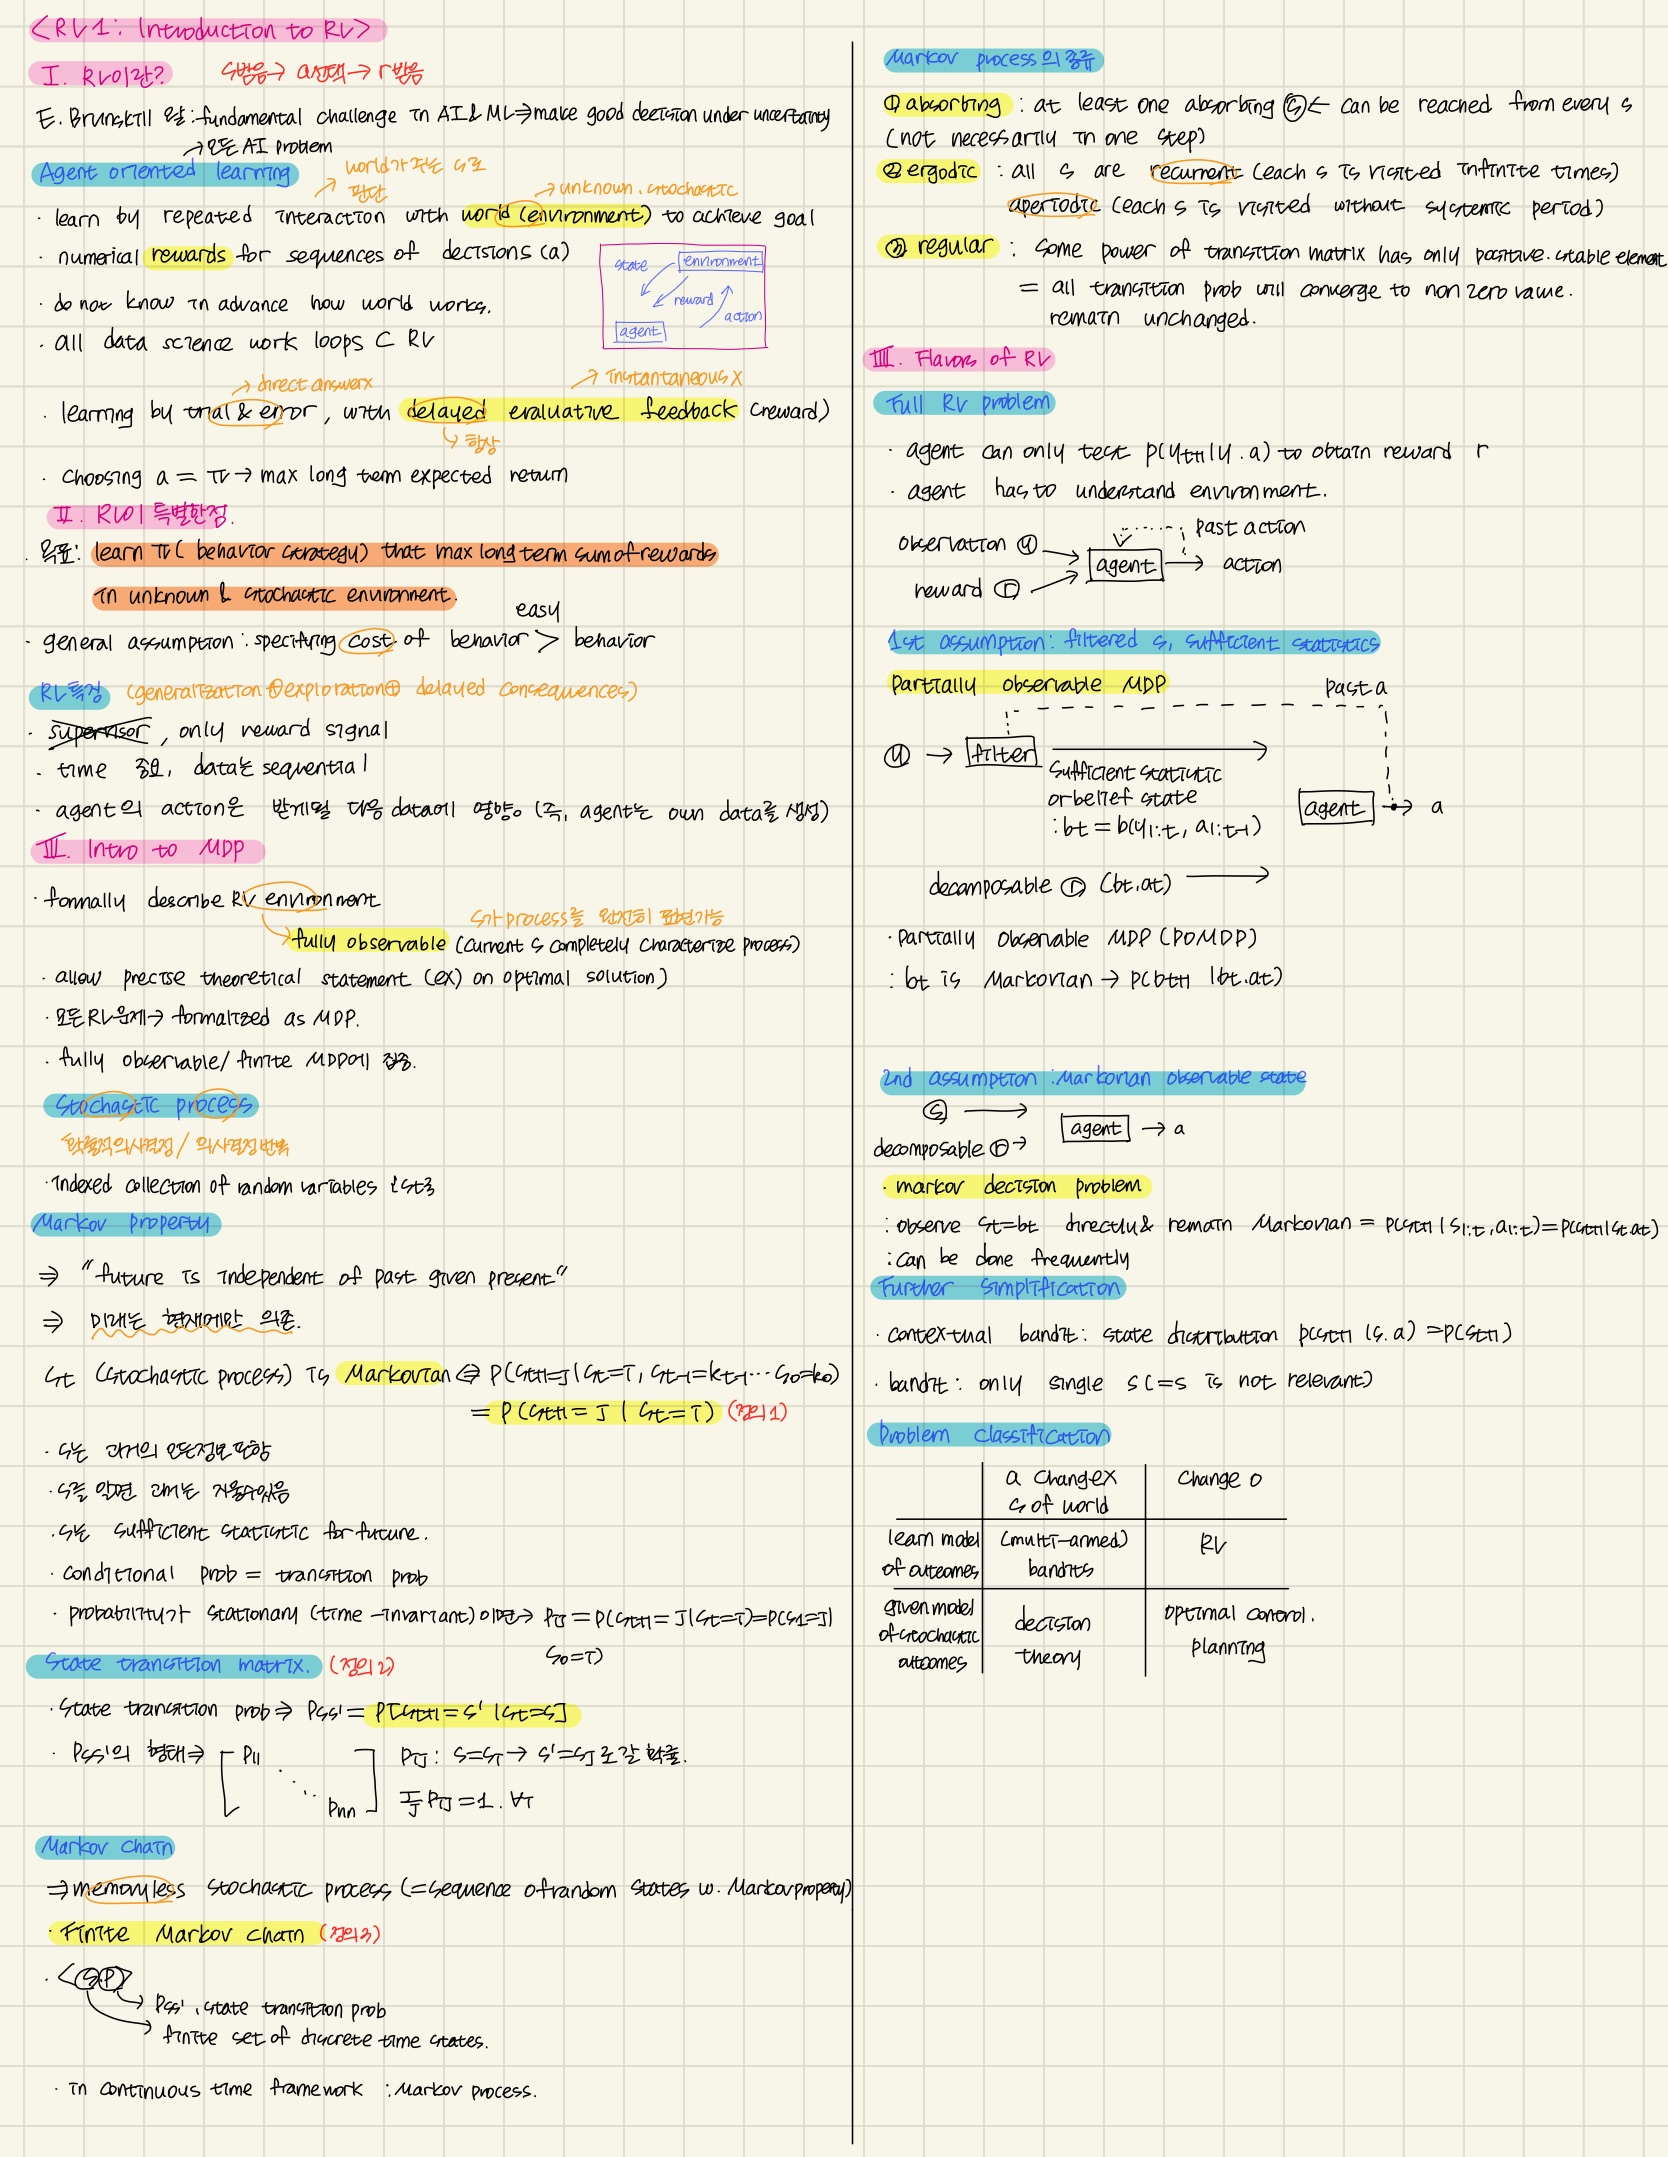 <RL1: Introduction to RL>
I. RL이란?
s받음→ a선택→ r받음
E. Brunskill 왈: fundamental challenge in AI & ML ⇒ make good decision under uncertainty
→ 모든 AI problem
Agent oriented learning
world가 주는 s로
판단
→ unknown. stochastic
· learn by repeated interaction with world (environment) to achieve goal
· numerical rewards for sequences of decisions (a)
state
environment
reward
action
agent
· do not know in advance how world works.
· all data science work loops ⊂ RL
→ direct answer x
→ instantaneous X
· learning by trial & error, with delayed evaluative feedback (reward)
↳ 항상
· choosing a = π → max long term expected return
II. RL이 특별한점.
· 목표: learn π( behavior strategy) that max long term sum of rewards
in unknown & stochastic environment.
easy
· general assumption: specifying cost of behavior > behavior
RL특징 (generalization ⊕ exploration ⊕ delayed consequences)
· supervisor, only reward signal
· time 중요, data는 sequential
· agent의 action은 받게될 다음 data에 영향o (즉, agent는 own data를 생성)
III. Intro to MDP
· formally describe RL environment
s가 process를 완전히 표현가능
↳ fully observable (current s completely characterize process)
· allow precise theoretical statement (ex) on optimal solution)
· 모든RL문제→ formalized as MDP.
· fully observable/ finite MDP에 집중.
Stochastic process
확률적의사결정/ 의사결정반복
· Indexed collection of random variables {st}
Markov property
⇒ "future is independent of past given present"
⇒ 미래는 현재에만 의존.
st (stochastic process) is Markovian ⇔ P(st+1=j | st=i, st-1=kt-1 ... s0=k0)
= P(st+1=j | st=i) (정의1)
· s는 과거의 모든정보포함
· s를 알면 과거는 지울수있음
· s는 sufficient statistic for future.
· conditional prob = transition prob
· probability가 stationary (time-invariant)이면→ Pij = P(st+1=j|st=i)=P(s1=j|
s0=i)
State transition matrix. (정의2)
· State transition prob ⇒ Pss' = P[st+1=s' |st=s]
· Pss'의 형태⇒ [ P11 ⋱ Pnn ] Pij: s=si → s'=sj로갈 확률.
Σj Pij = 1. ∀i
Markov chain
⇒ memoryless stochastic process (=sequence of random states w. Markov property)
· Finite Markov chain (정의3)
· <S,P>
Pss', state transition prob
finite set of discrete time states.
· in continuous time framework : Markov process.
Markov process의 종류
① absorbing : at least one absorbing ⓢ ← can be reached from every s
(not necessartly in one step)
② ergodic : all s are recurrent (each s is visited infinite times)
aperiodic (each s is visited without systemic period)
③ regular : some power of transition matrix has only positive. stable element
= all transition prob will converge to non zero value.
remain unchanged.
III. Flavors of RL
Full RL problem
· agent can only test p(yt+1|y.a) to obtain reward r
· agent has to understand environment.
past action
observation ⓨ
agent → action
reward ⓡ
1st assumption: filtered s, sufficient statistics
Partially observable MDP
past a
ⓨ → filter →
sufficient statistic
or belief state
: bt = b(y1:t, a1:t-1)
agent → a
decomposable ⓡ (bt.at) →
· Partially Observable MDP (POMDP)
: bt is Markovian → P(bt+1 |bt.at)
2nd assumption : Markovian observable state
ⓢ →
agent → a
decomposable ⓡ →
· markov decision problem
: observe st=bt directly & remain Markovian = P(st+1 | s1:t, a1:t)=P(st+1|st.at)
: can be done frequently
Further simplification
· contextual bandit: state distribution P(st+1 |s.a) =P(st+1)
· bandit: only single s (=s is not relevant)
Problem classification
a change X
s of world
change o
learn model
of outcomes
(multi-armed)
bandits
RL
given model
of stochastic
outcomes
decision
theory
optimal control.
planning